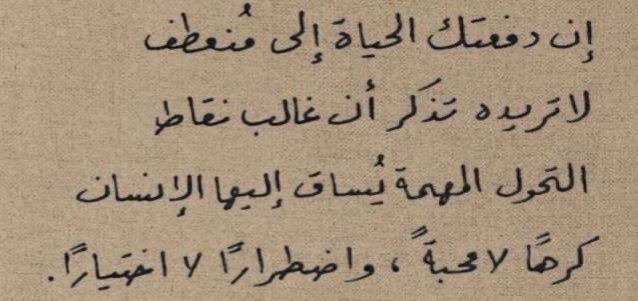 إن دفعتك الحياة إلى مُنعطف
لا تريده تذكر أن غالب نقاط
التحول المهمة يُساق إليها الإنسان
كرهًا لا محبةً، واضطرارًا لا اختيارًا.